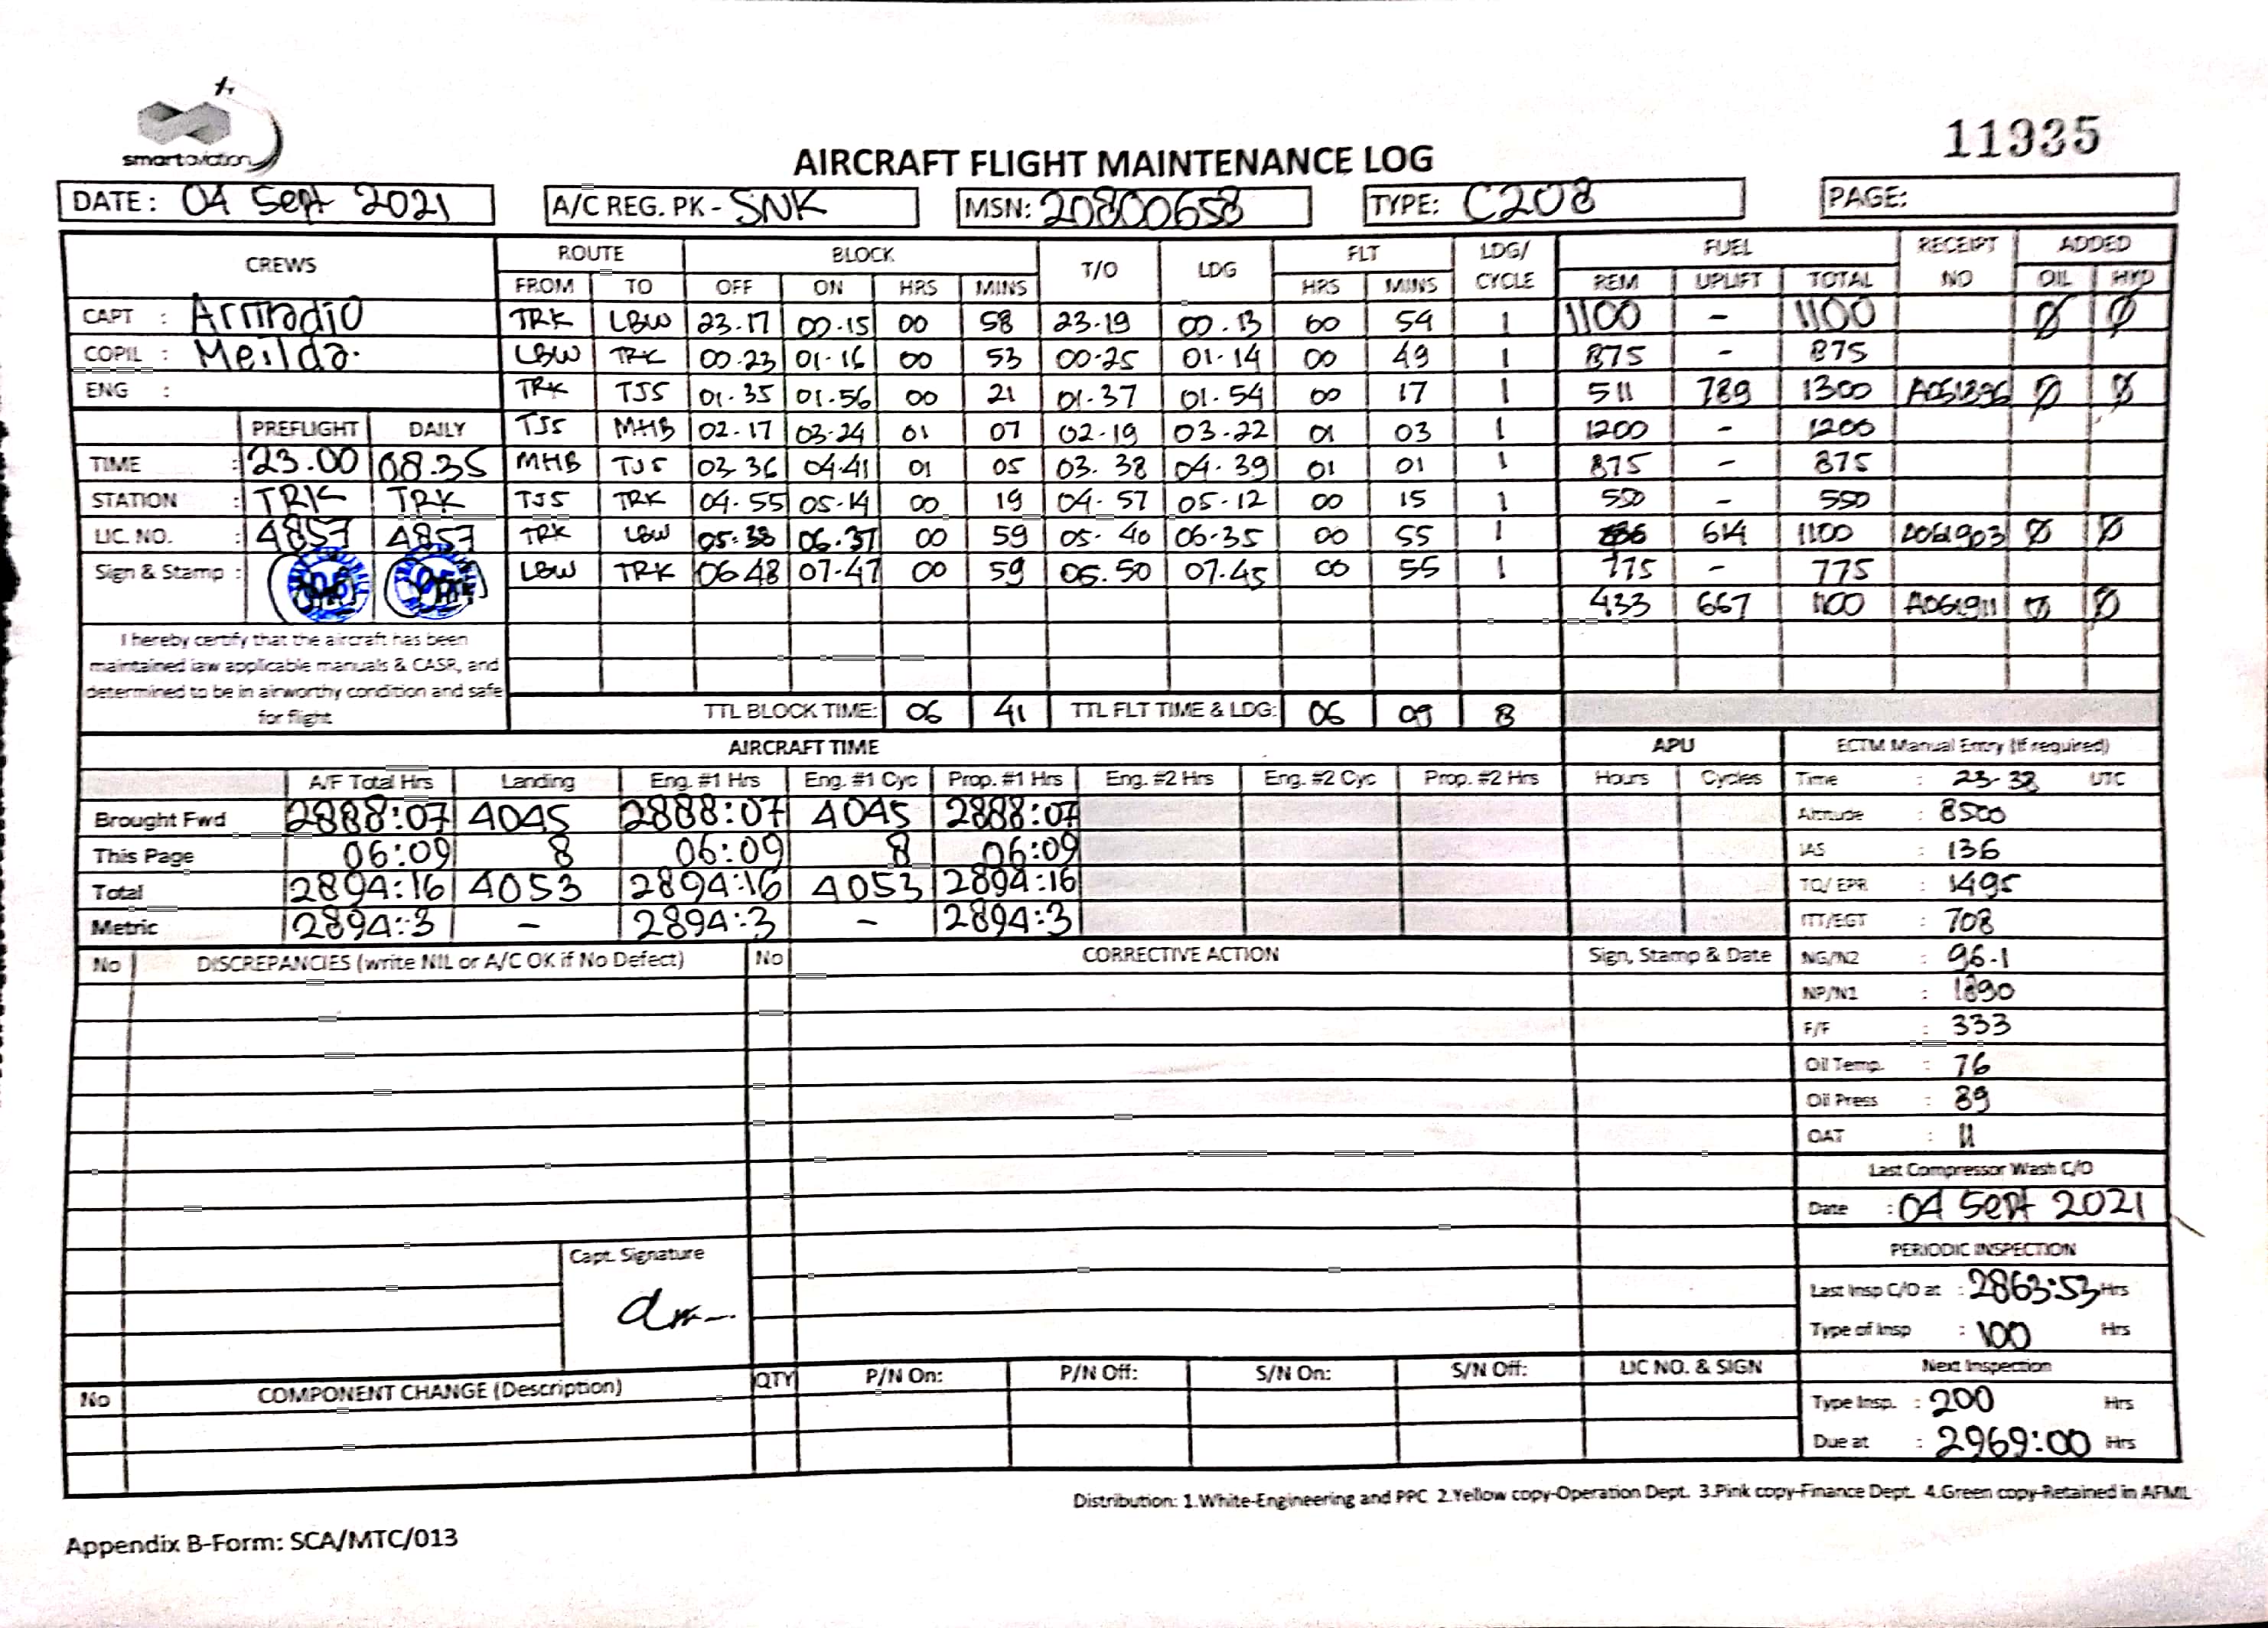 smart aviation
11935
AIRCRAFT FLIGHT MAINTENANCE LOG
DATE: 04 Sept 2021 A/C REG. PK - SNK MSN: 20800658 TYPE: C208 PAGE:
CREWS ROUTE BLOCK T/O LDG FLT LDG/ CYCLE FUEL RECEIPT NO ADDED
FROM TO OFF ON HRS MINS HRS MINS REM UPLIFT TOTAL OIL HYD
CAPT : Armadio TRK LBW 23.17 00.15 00 58 23.19 00.13 00 54 1 1100 - 1100 Ø Ø
COPIL : Meilda. LBW TRK 00.23 01.16 00 53 00.25 01.14 00 49 1 875 - 875
ENG : TRK TJS 01.35 01.56 00 21 01.37 01.54 00 17 1 511 789 1300 A061896 Ø Ø
PREFLIGHT DAILY TJS MHB 02.17 03.24 01 07 02.19 03.22 01 03 1 1200 - 1200
TIME : 23.00 08.35 MHB TJS 03.36 04.41 01 05 03.38 04.39 01 01 1 875 - 875
STATION : TRK TRK TJS TRK 04.55 05.14 00 19 04.57 05.12 00 15 1 550 - 550
LIC. NO. : 4857 4857 TRK LBW 05.38 06.37 00 59 05.40 06.35 00 55 1 614 1100 A061903 Ø Ø
Sign & Stamp : LBW TRK 06.48 07.47 00 59 06.50 07.45 00 55 1 775 - 775
433 667 1100 A061911 Ø Ø
I hereby certify that the aircraft has been
maintained iaw applicable manuals & CASR, and
determined to be in airworthy condition and safe
for flight
TTL BLOCK TIME: 06 41 TTL FLT TIME & LDG: 06 09 8
AIRCRAFT TIME APU ECTM Manual Entry (If required)
A/F Total Hrs Landing Eng. #1 Hrs Eng. #1 Cyc Prop. #1 Hrs Eng. #2 Hrs Eng. #2 Cyc Prop. #2 Hrs Hours Cycles Time : 23.38 UTC
Brought Fwd 2888:07 4045 2888:07 4045 2888:07 Altitude : 8500
This Page 06:09 8 06:09 8 06:09 IAS : 136
Total 2894:16 4053 2894:16 4053 2894:16 TQ/EPR : 1495
Metric 2894:3 - 2894:3 - 2894:3 ITT/EGT : 708
No DISCREPANCIES (write NIL or A/C OK if No Defect) No CORRECTIVE ACTION Sign, Stamp & Date NG/N2 : 96.1
NP/N1 : 1890
F/F : 333
Oil Temp. : 76
Oil Press : 89
OAT : 11
Last Compressor Wash C/O
Date : 04 Sept 2021
Capt. Signature
PERIODIC INSPECTION
Last Insp C/O at : 2863:53 Hrs
Type of Insp : 100 Hrs
No COMPONENT CHANGE (Description) QTY P/N On: P/N Off: S/N On: S/N Off: LIC NO. & SIGN Next Inspection
Type Insp. : 200 Hrs
Due at : 2969:00 Hrs
Distribution: 1.White-Engineering and PPC 2.Yellow copy-Operation Dept. 3.Pink copy-Finance Dept. 4.Green copy-Retained in AFML
Appendix B-Form: SCA/MTC/013